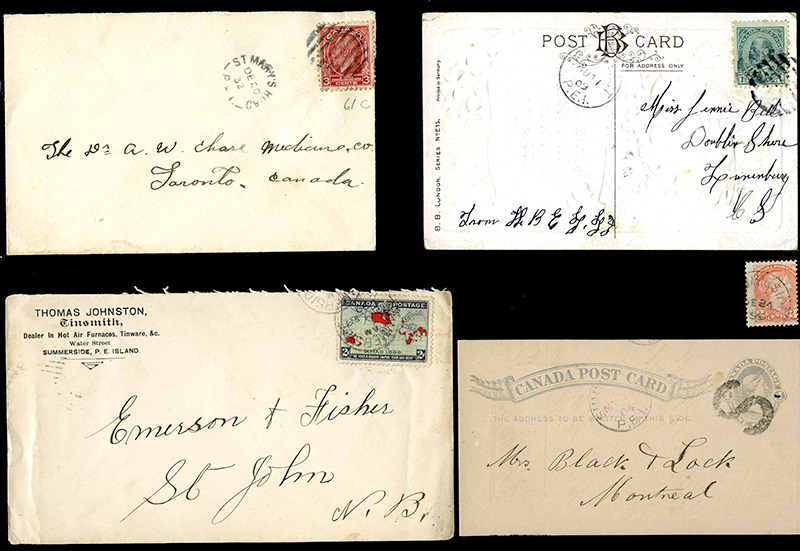 CANADA
3 CENTS 3
ST MARY'S ROAD
DE 20
32
P.E.I.
61c
The Dr. A. W. Chase Medicine Co
Toronto, Canada.
POST CARD
BB
FOR ADDRESS ONLY
Printed in Germany.
B. B. LONDON. SERIES NO E15.
09
P.E.I.
Miss Jennie Bell
Dublin Shore
Lunenburg
From H B E
THOMAS JOHNSTON,
Tinsmith,
Dealer in Hot Air Furnaces, Tinware, &c.
Water Street
SUMMERSIDE, P. E. ISLAND.
CANADA POSTAGE
XMAS 1898
2c 2c
WE HOLD A VASTER EMPIRE THAN HAS BEEN
Emerson & Fisher
St John
N. B.
24
CANADA POST CARD
THE ADDRESS TO BE WRITTEN ON THIS SIDE.
CANADA POSTAGE
P.E.I.
Mrs. Black & Lock
Montreal